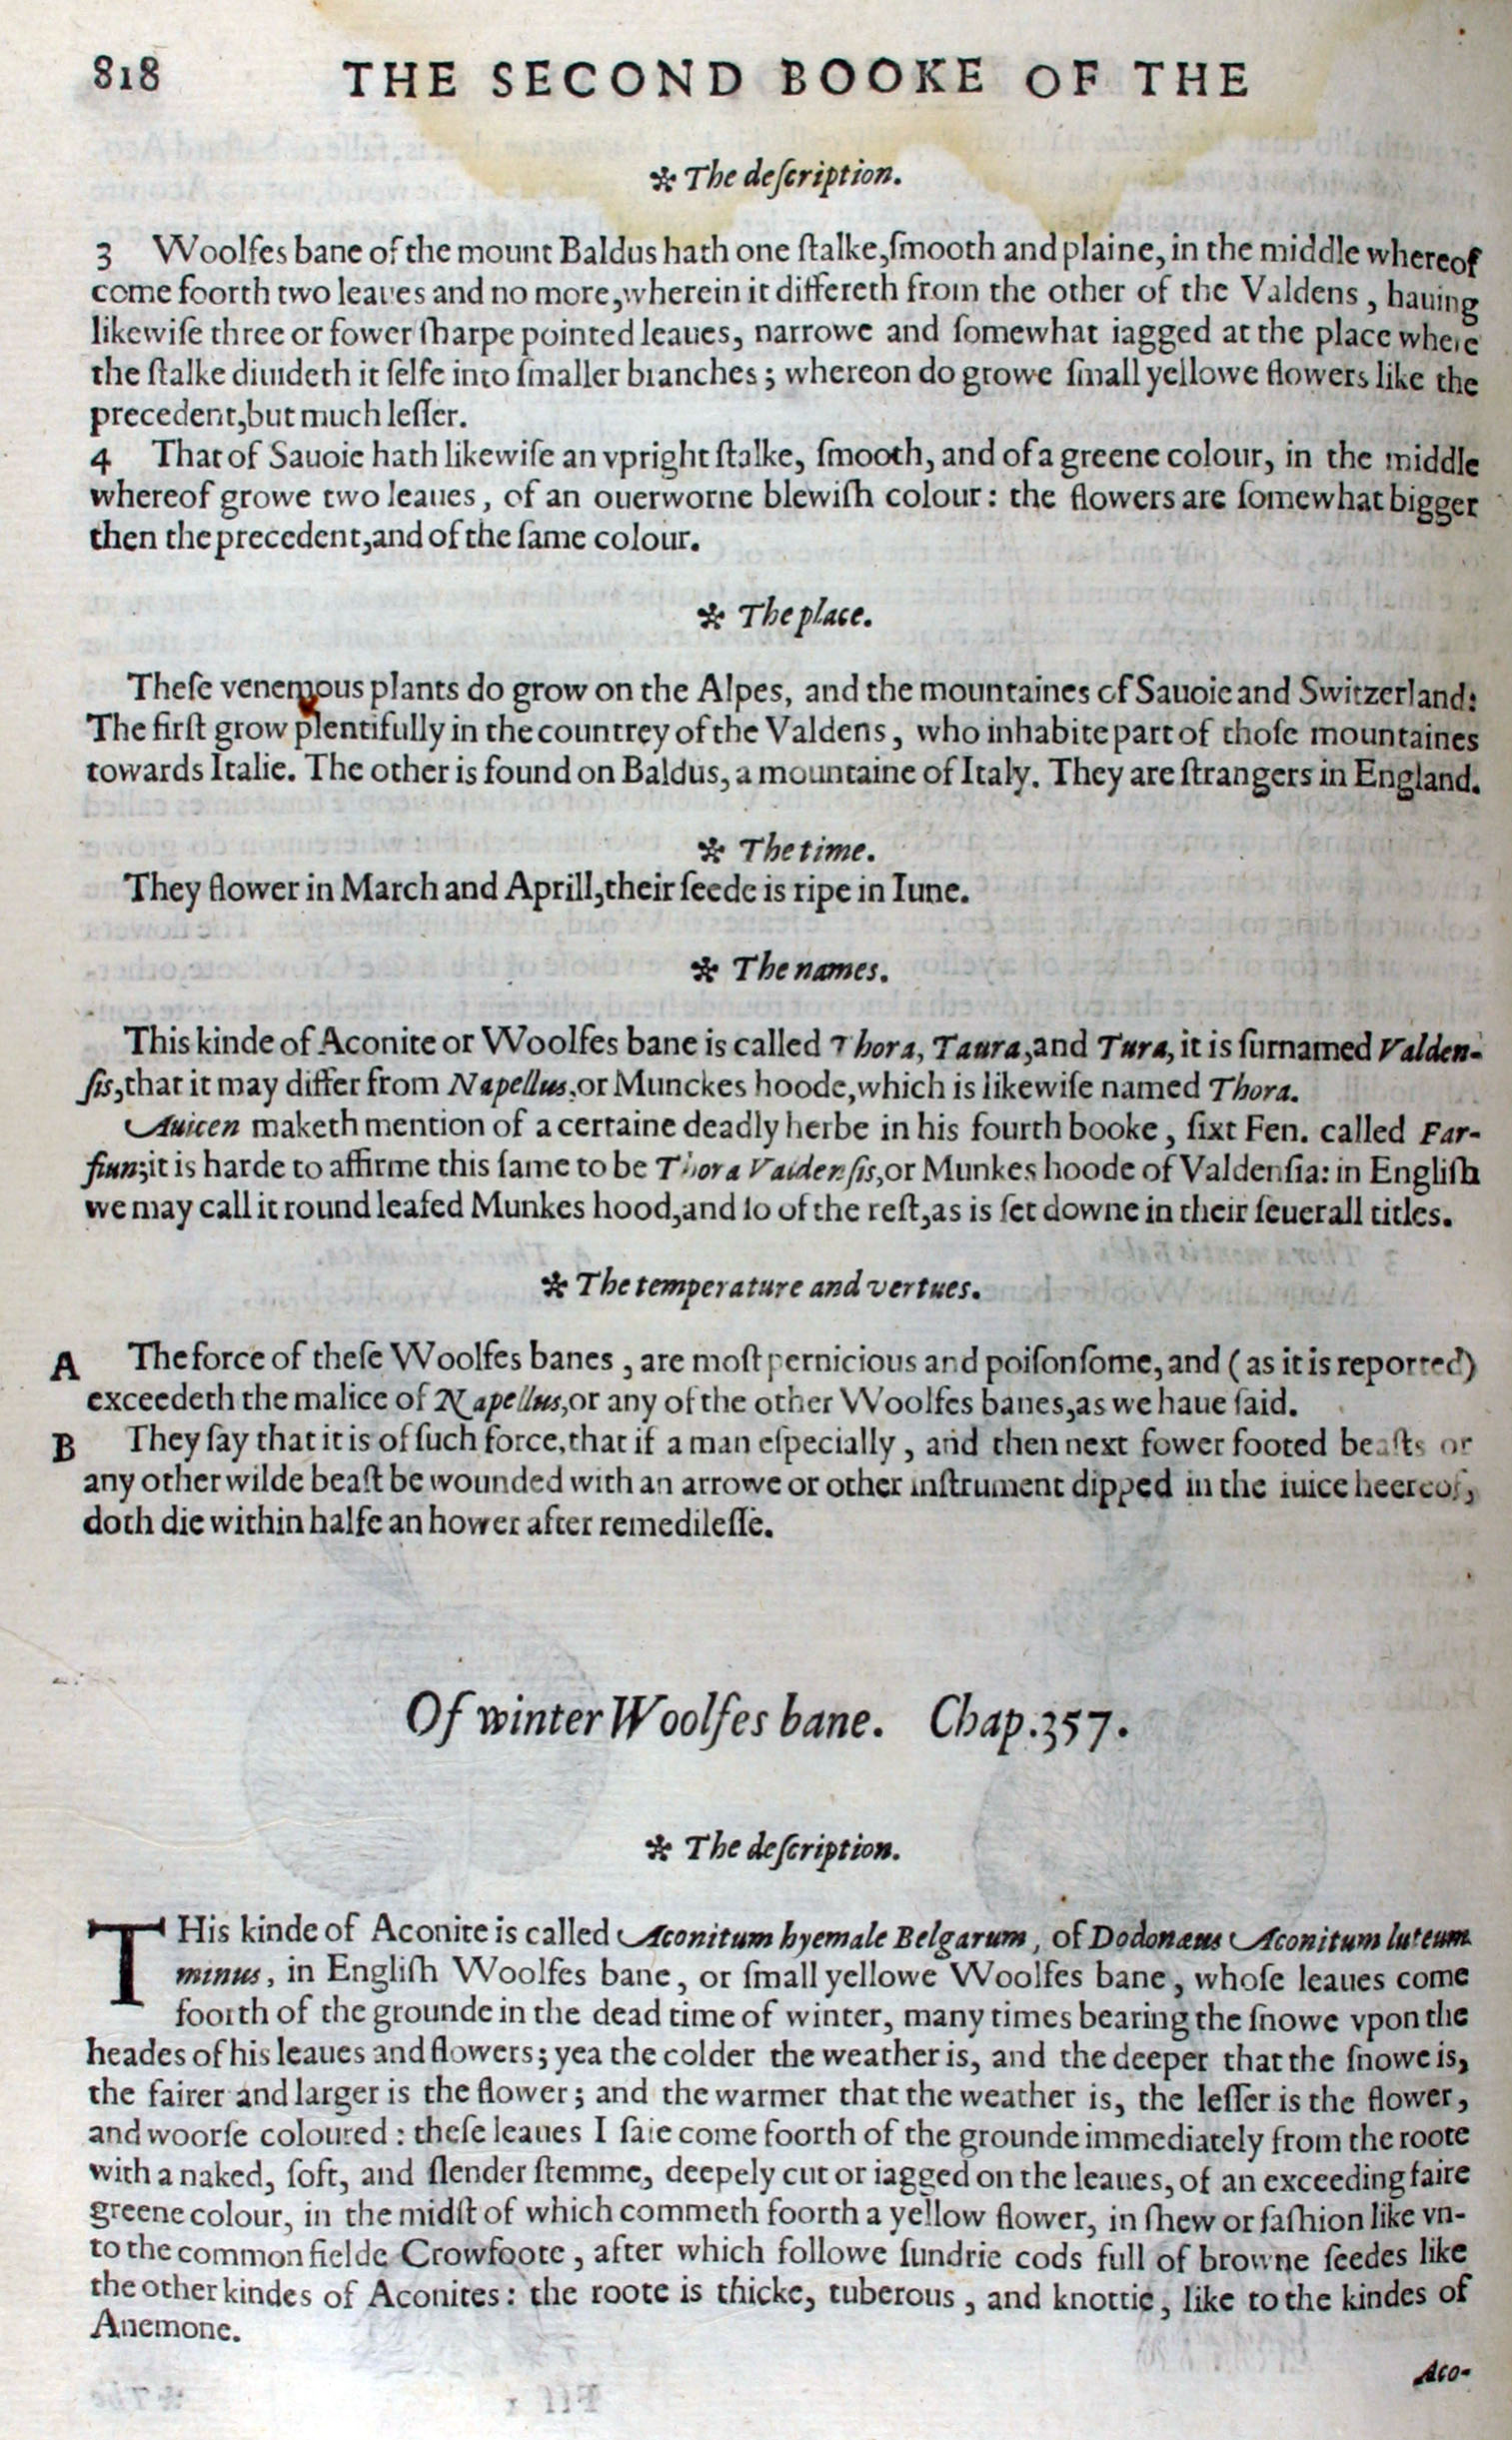 818 THE SECOND BOOKE OF THE
✲ The deſcription.
3 Woolfes bane of the mount Baldus hath one ſtalke,ſmooth and plaine, in the middle whereof
come foorth two leaues and no more,wherein it differeth from the other of the Valdens , hauing
likewiſe three or fower ſharpe pointed leaues, narrowe and ſomewhat iagged at the place where
the ſtalke diuideth it ſelfe into ſmaller branches ; whereon do growe ſmall yellowe flowers like the
precedent,but much leſſer.
4 That of Sauoie hath likewiſe an vpright ſtalke, ſmooth, and of a greene colour, in the middle
whereof growe two leaues , of an ouerworne blewiſh colour : the flowers are ſomewhat bigger
then the precedent,and of the ſame colour.
✲ The place.
Theſe venemous plants do grow on the Alpes, and the mountaines of Sauoie and Switzerland:
The firſt grow plentifully in the countrey of the Valdens , who inhabite part of thoſe mountaines
towards Italie. The other is found on Baldus, a mountaine of Italy. They are ſtrangers in England.
✲ The time.
They flower in March and Aprill,their ſeede is ripe in Iune.
✲ The names.
This kinde of Aconite or Woolfes bane is called Thora, Taura,and Tura, it is ſurnamed Valden-
ſis,that it may differ from Napellus,or Munckes hoode,which is likewiſe named Thora.
Auicen maketh mention of a certaine deadly herbe in his fourth booke , ſixt Fen. called Far-
fiun;it is harde to affirme this ſame to be Thora Valdenſis,or Munkes hoode of Valdenſia: in Engliſh
we may call it round leafed Munkes hood,and ſo of the reſt,as is ſet downe in their ſeuerall titles.
✲ The temperature and vertues.
A The force of theſe Woolfes banes , are moſt pernicious and poiſonſome, and ( as it is reported)
exceedeth the malice of Napellus,or any of the other Woolfes banes,as we haue ſaid.
B They ſay that it is of ſuch force,that if a man eſpecially , and then next fower footed beaſts or
any other wilde beaſt be wounded with an arrowe or other inſtrument dipped in the iuice heereof,
doth die within halfe an hower after remedileſſe.
Of winter Woolfes bane. Chap.357.
✲ The deſcription.
THis kinde of Aconite is called Aconitum hyemale Belgarum, of Dodonæus Aconitum luteum
minus, in Engliſh Woolfes bane, or ſmall yellowe Woolfes bane, whoſe leaues come
foorth of the grounde in the dead time of winter, many times bearing the ſnowe vpon the
heades of his leaues and flowers; yea the colder the weather is, and the deeper that the ſnowe is,
the fairer and larger is the flower ; and the warmer that the weather is, the leſſer is the flower,
and woorſe coloured : theſe leaues I ſaie come foorth of the grounde immediately from the roote
with a naked, ſoft, and ſlender ſtemme, deepely cut or iagged on the leaues, of an exceeding faire
greene colour, in the midſt of which commeth foorth a yellow flower, in ſhew or faſhion like vn-
to the common fielde Crowfoote , after which followe ſundrie cods full of browne ſeedes like
the other kindes of Aconites : the roote is thicke, tuberous , and knottie , like to the kindes of
Anemone.
Aco-